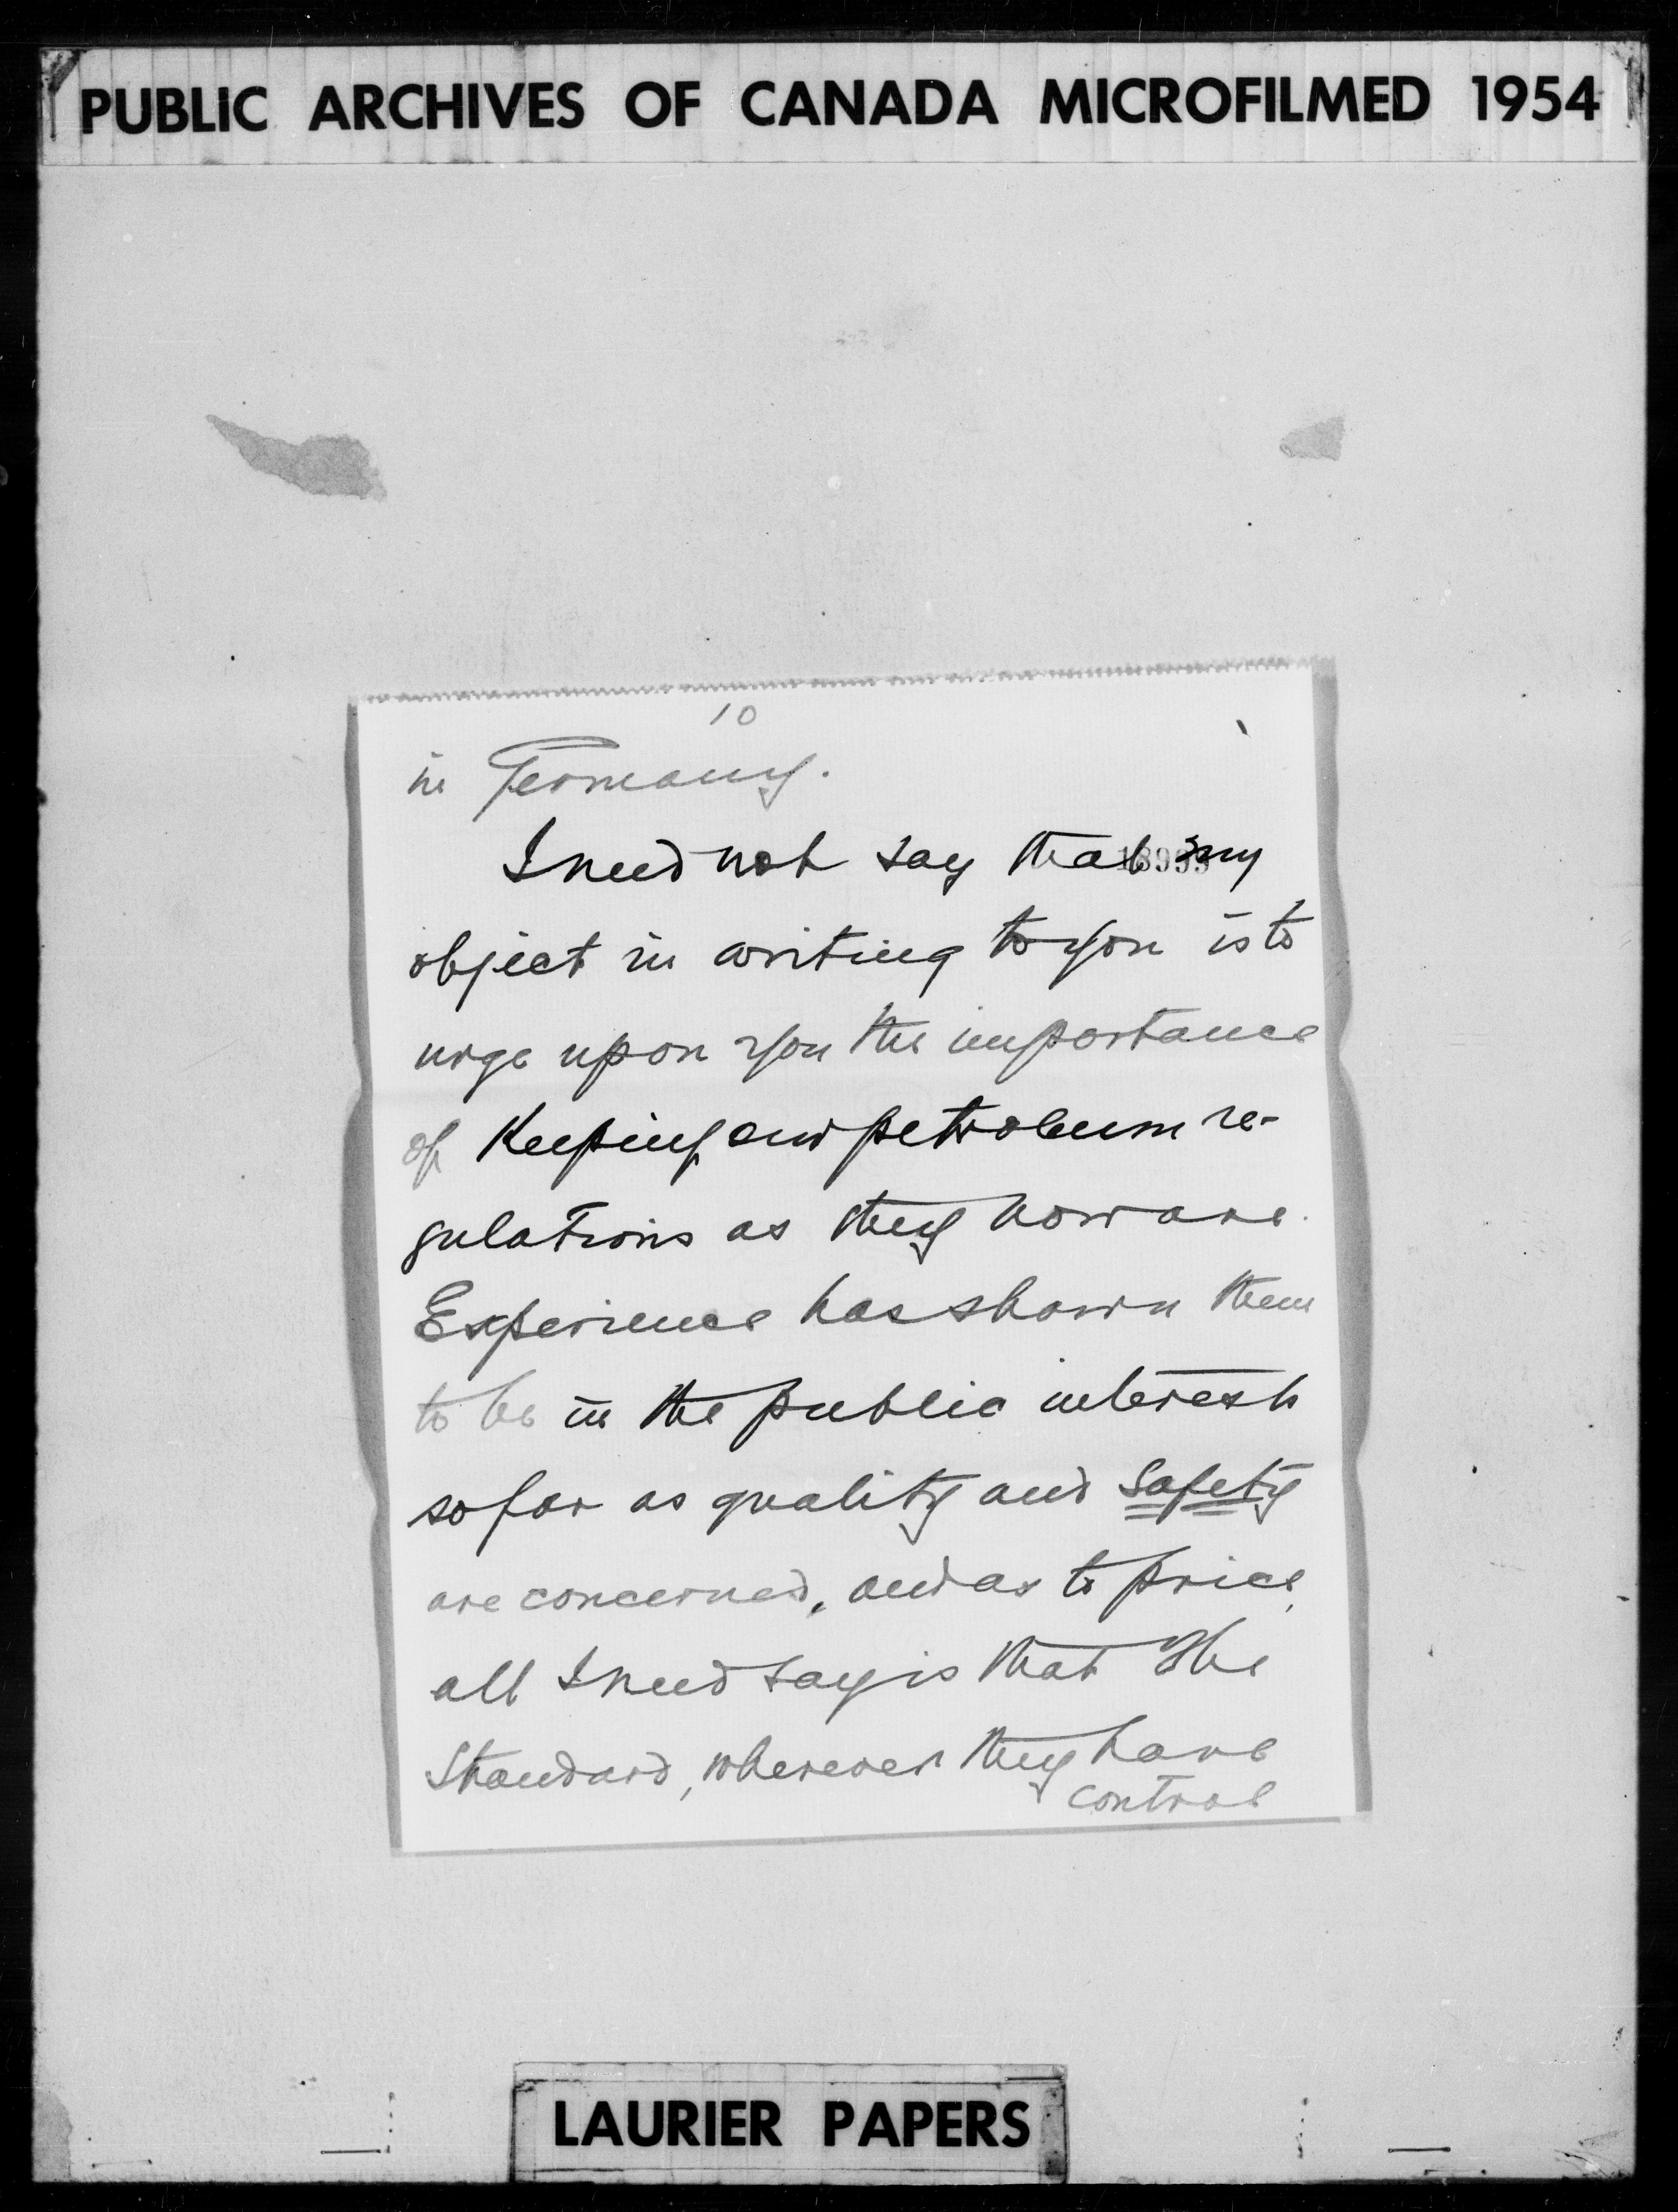 PUBLIC ARCHIVES OF CANADA MICROFILMED 1954
10
in Germany.
I need not say that my
object in writing to you is to
urge upon you the importance
of Keeping our petroleum re-
gulations as they now are.
Experience has shown them
to be in the public interest
so far as quality and safety
are concerned, and as to price,
all I need say is that The
Standard, wherever they have
control
LAURIER PAPERS